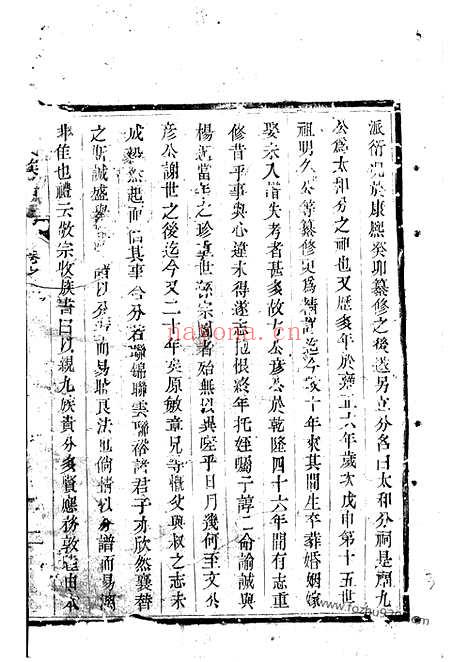 派衍 於康熙癸卯纂修之後迭另立分名曰太和分祠是廟九
公爲太和分之祖也又歷多年於雍正六年歲次戊申第十五世
祖明久公等纂修更爲精詳迄今數十年來其間生卒葬婚姻嫁
娶宗人措失考者甚多故十公彥公於乾隆四十六年間有志重
修昔乎事與心違未得遂志抱恨終年托姪囑子諄二命諭誠與
楊 當年之珍重世系宗圖者殆無以異嗟乎日月幾何至文公
彥公謝世之後迄今又二十年矣原敏章兄等慨父與叔之志未
成毅然起而倡其事合分若聯錦聯雲聯裕諸君子亦欣然襄替
之斯誠盛舉 以分譜而易 良法也倘情以分譜而易
非佳也禮云敬宗收族書曰以親九族貴分多賢應務敦 由
nabona.cn